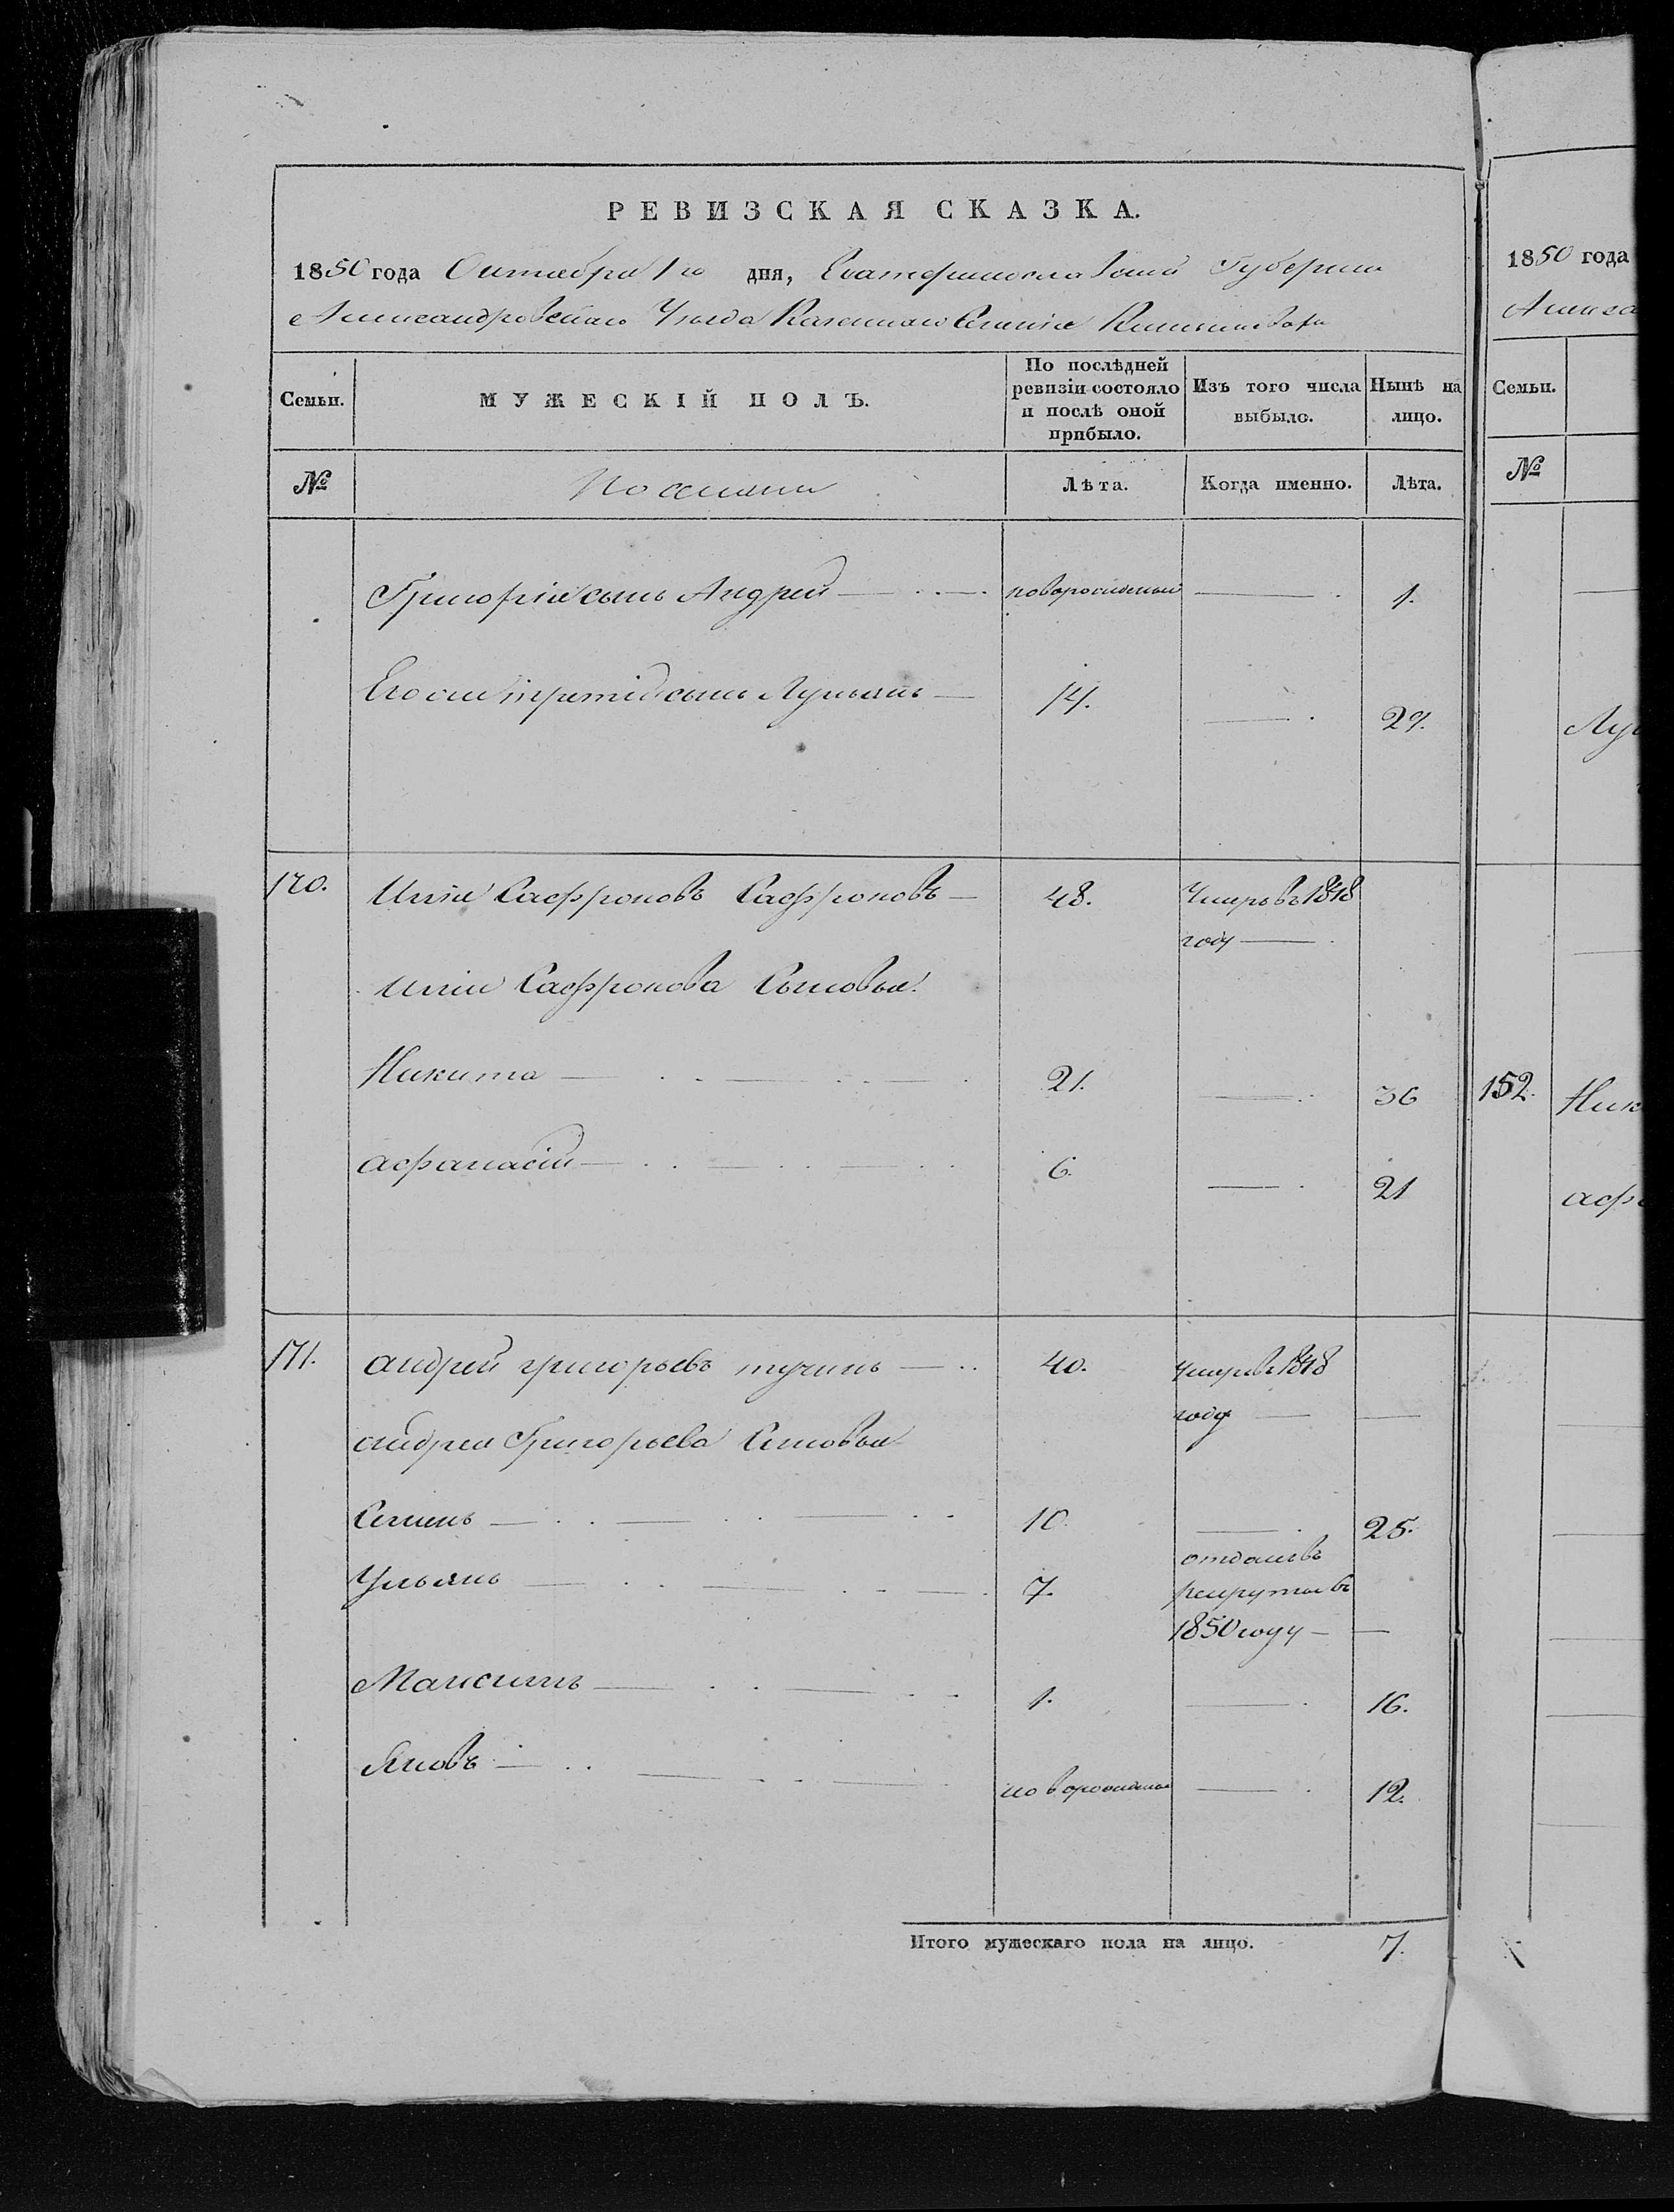 РЕВИЗСКАЯ СКАЗКА.
1850 года Октября 1го дня, Екатеринославской Губернии
Александровскаго Уезда Казеннаго Селения
Семьи.
МУЖЕСКІЙ ПОЛЪ.
По послѣдней ревизіи состояло и послѣ оной прибыло.
Изъ того числа выбыло.
Нынѣ на лицо.
№
Поселяни
Лѣта.
Когда именно.
Лѣта.
Григорія сынъ Андрей новорожденый 1.
Его же третій сынъ Лукьянъ 14. 29.
170. Сафроновъ Сафроновъ 48. Умеръ въ 1848
году
Сафронова Сыновья.
Никита 21. 36
афанасій 6. 21
171. андрей григорьевъ тучинъ 40. Умеръ въ 1848
году
андрея Григорьева Сыновья
Семенъ 10. 25.
Ульянъ 7. отданъ въ
рекруты въ
1850 году
Максимъ 1. 16.
Яковъ новорожденый 12.
Итого мужескаго пола на лицо. 7.
1850 года
Алекса
Семьи.
№
Лук
152. Ник
афа